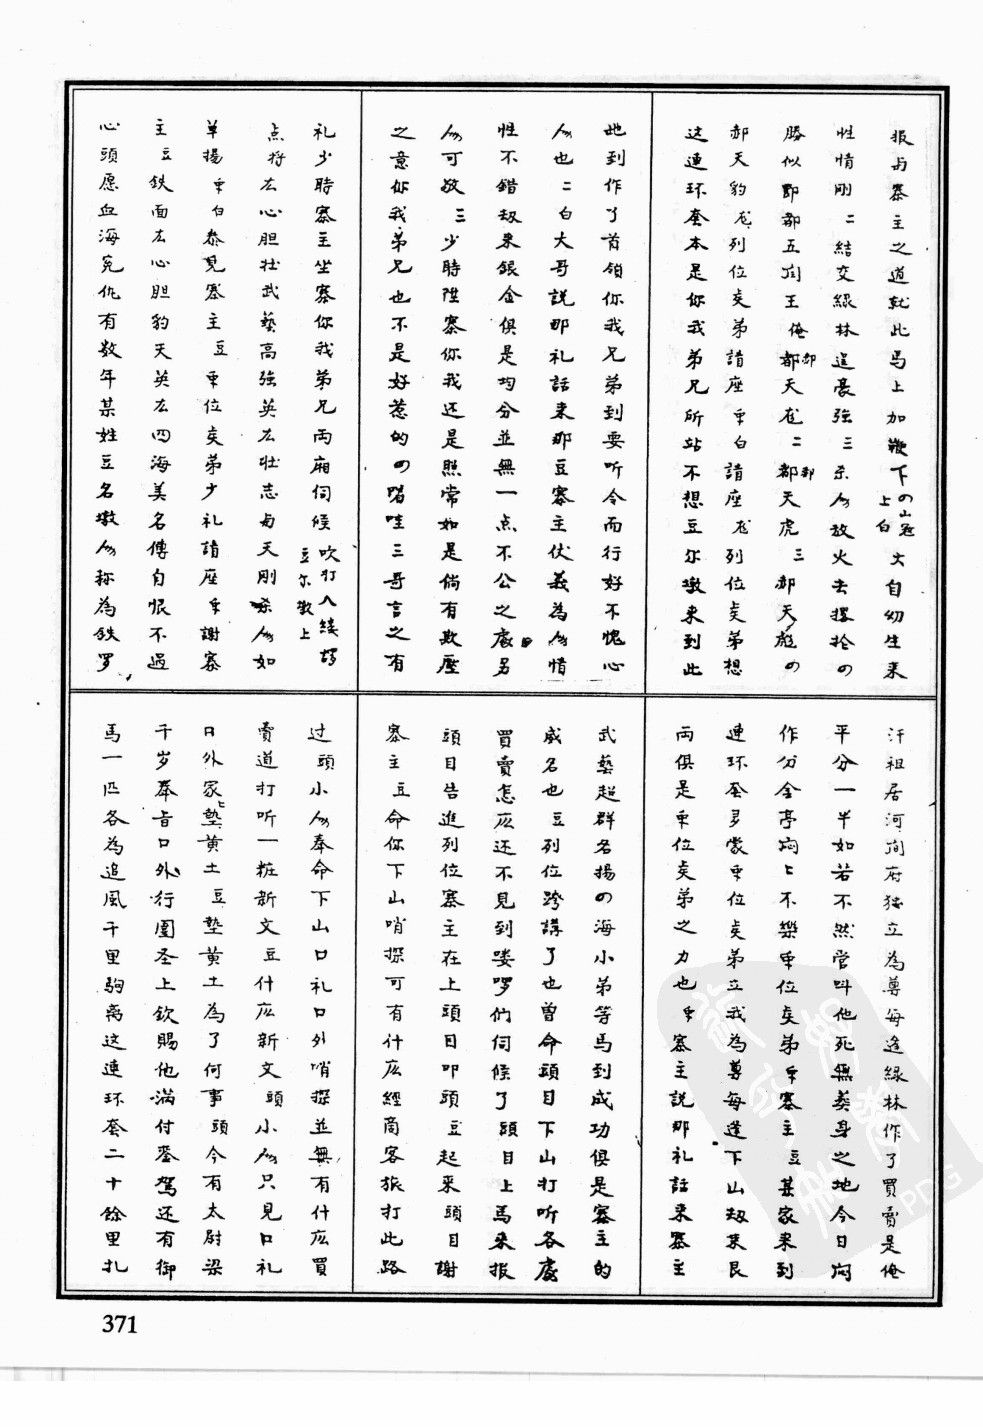 报与寨主之道就此马上加鞭下の山冠上白大自幼生来
性情刚二結交緑林逞豪強三杀人放火去掳抢の
勝似酆都五阎王俺郝都天虎二郝都天虎三郝天彪の
郝天豹虎列位贤弟請座众白請座虎列位贤弟想
这連环套本是你我弟兄所站不想豆尔墩来到此
此到作了首领你我兄弟到要听令而行好不愧心
人也二白大哥説那礼話来那豆寨主伏義為人情
性不錯刼来銀金俱是均分並無一点不公之處另
人可敬三少時陞寨你我还是照常如是倘有欺壓
之意你我弟兄也不是好惹的の喏哇三哥言之有
礼少時寨主坐寨你我弟兄両廂伺候吹打人豆尔墩上
点将左心胆壮武藝高強英左壮志与天刚杀人如
草揚众白叅見寨主豆众位贤弟少礼請座众謝寨
主豆鉄面左心胆豹天英左四海美名傳自恨不過
心頭愿血海冤仇有数年某姓豆名墩人称為鉄罗
汗祖居河间府独立為尊每逢緑林作了買賣是俺
平分一半如若不然管叫他死無葬身之地今日闷
作分金亭闷上不樂众位贤弟众寨主豆某家来到
連环套多蒙众位贤弟立我為尊每逢下山刼某良
両俱是众位贤弟之力也众寨主説那礼話来寨主
武藝超群名揚の海小弟等馬到成功俱是寨主的
威名也豆列位跨講了也曽命頭目下山打听各處
買賣怎庅还不見到喽啰们伺候了頭目上馬来报
頭目告進列位寨主在上頭目叩頭豆起来頭目謝
寨主豆命你下山哨探可有什庅經商客旅打此路
过頭小人奉命下山口礼口外哨探並無有什庅買
賣道打听一粧新文豆什庅新文頭小人只見口礼
口外家上墊黄土豆墊黄土為了何事頭今有太尉梁
千岁奉旨口外行圍圣上欽賜他满付銮駕还有御
馬一匹各為追風千里駒离这連环套二十餘里扎
371